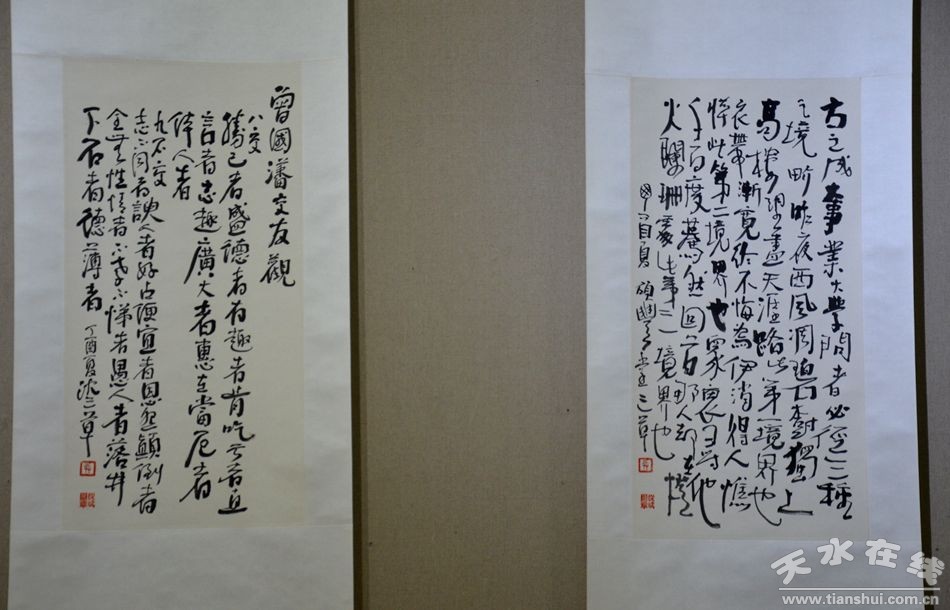 曾國藩交友觀
八交
勝己者盛德者有趣者肯吃亏者直
言者志趣廣大者惠在當厄者
体人者
九不交
志不同者諛人者好占便宜者恩怨顛倒者
全無性情者不孝不悌者愚人者落井
下石者德薄者 丁酉夏 三草
古之成大事業大學問者必經三種
之境 昨夜西風凋碧樹獨上
高樓望盡天涯路此第一境界也
衣帶漸寬終不悔為伊消得人憔
悴此第二境界也眾裏尋他
千百度驀然回首那人却在燈
火闌珊處此第三境界也
丁酉夏 三草
天水在线
www.tianshui.com.cn